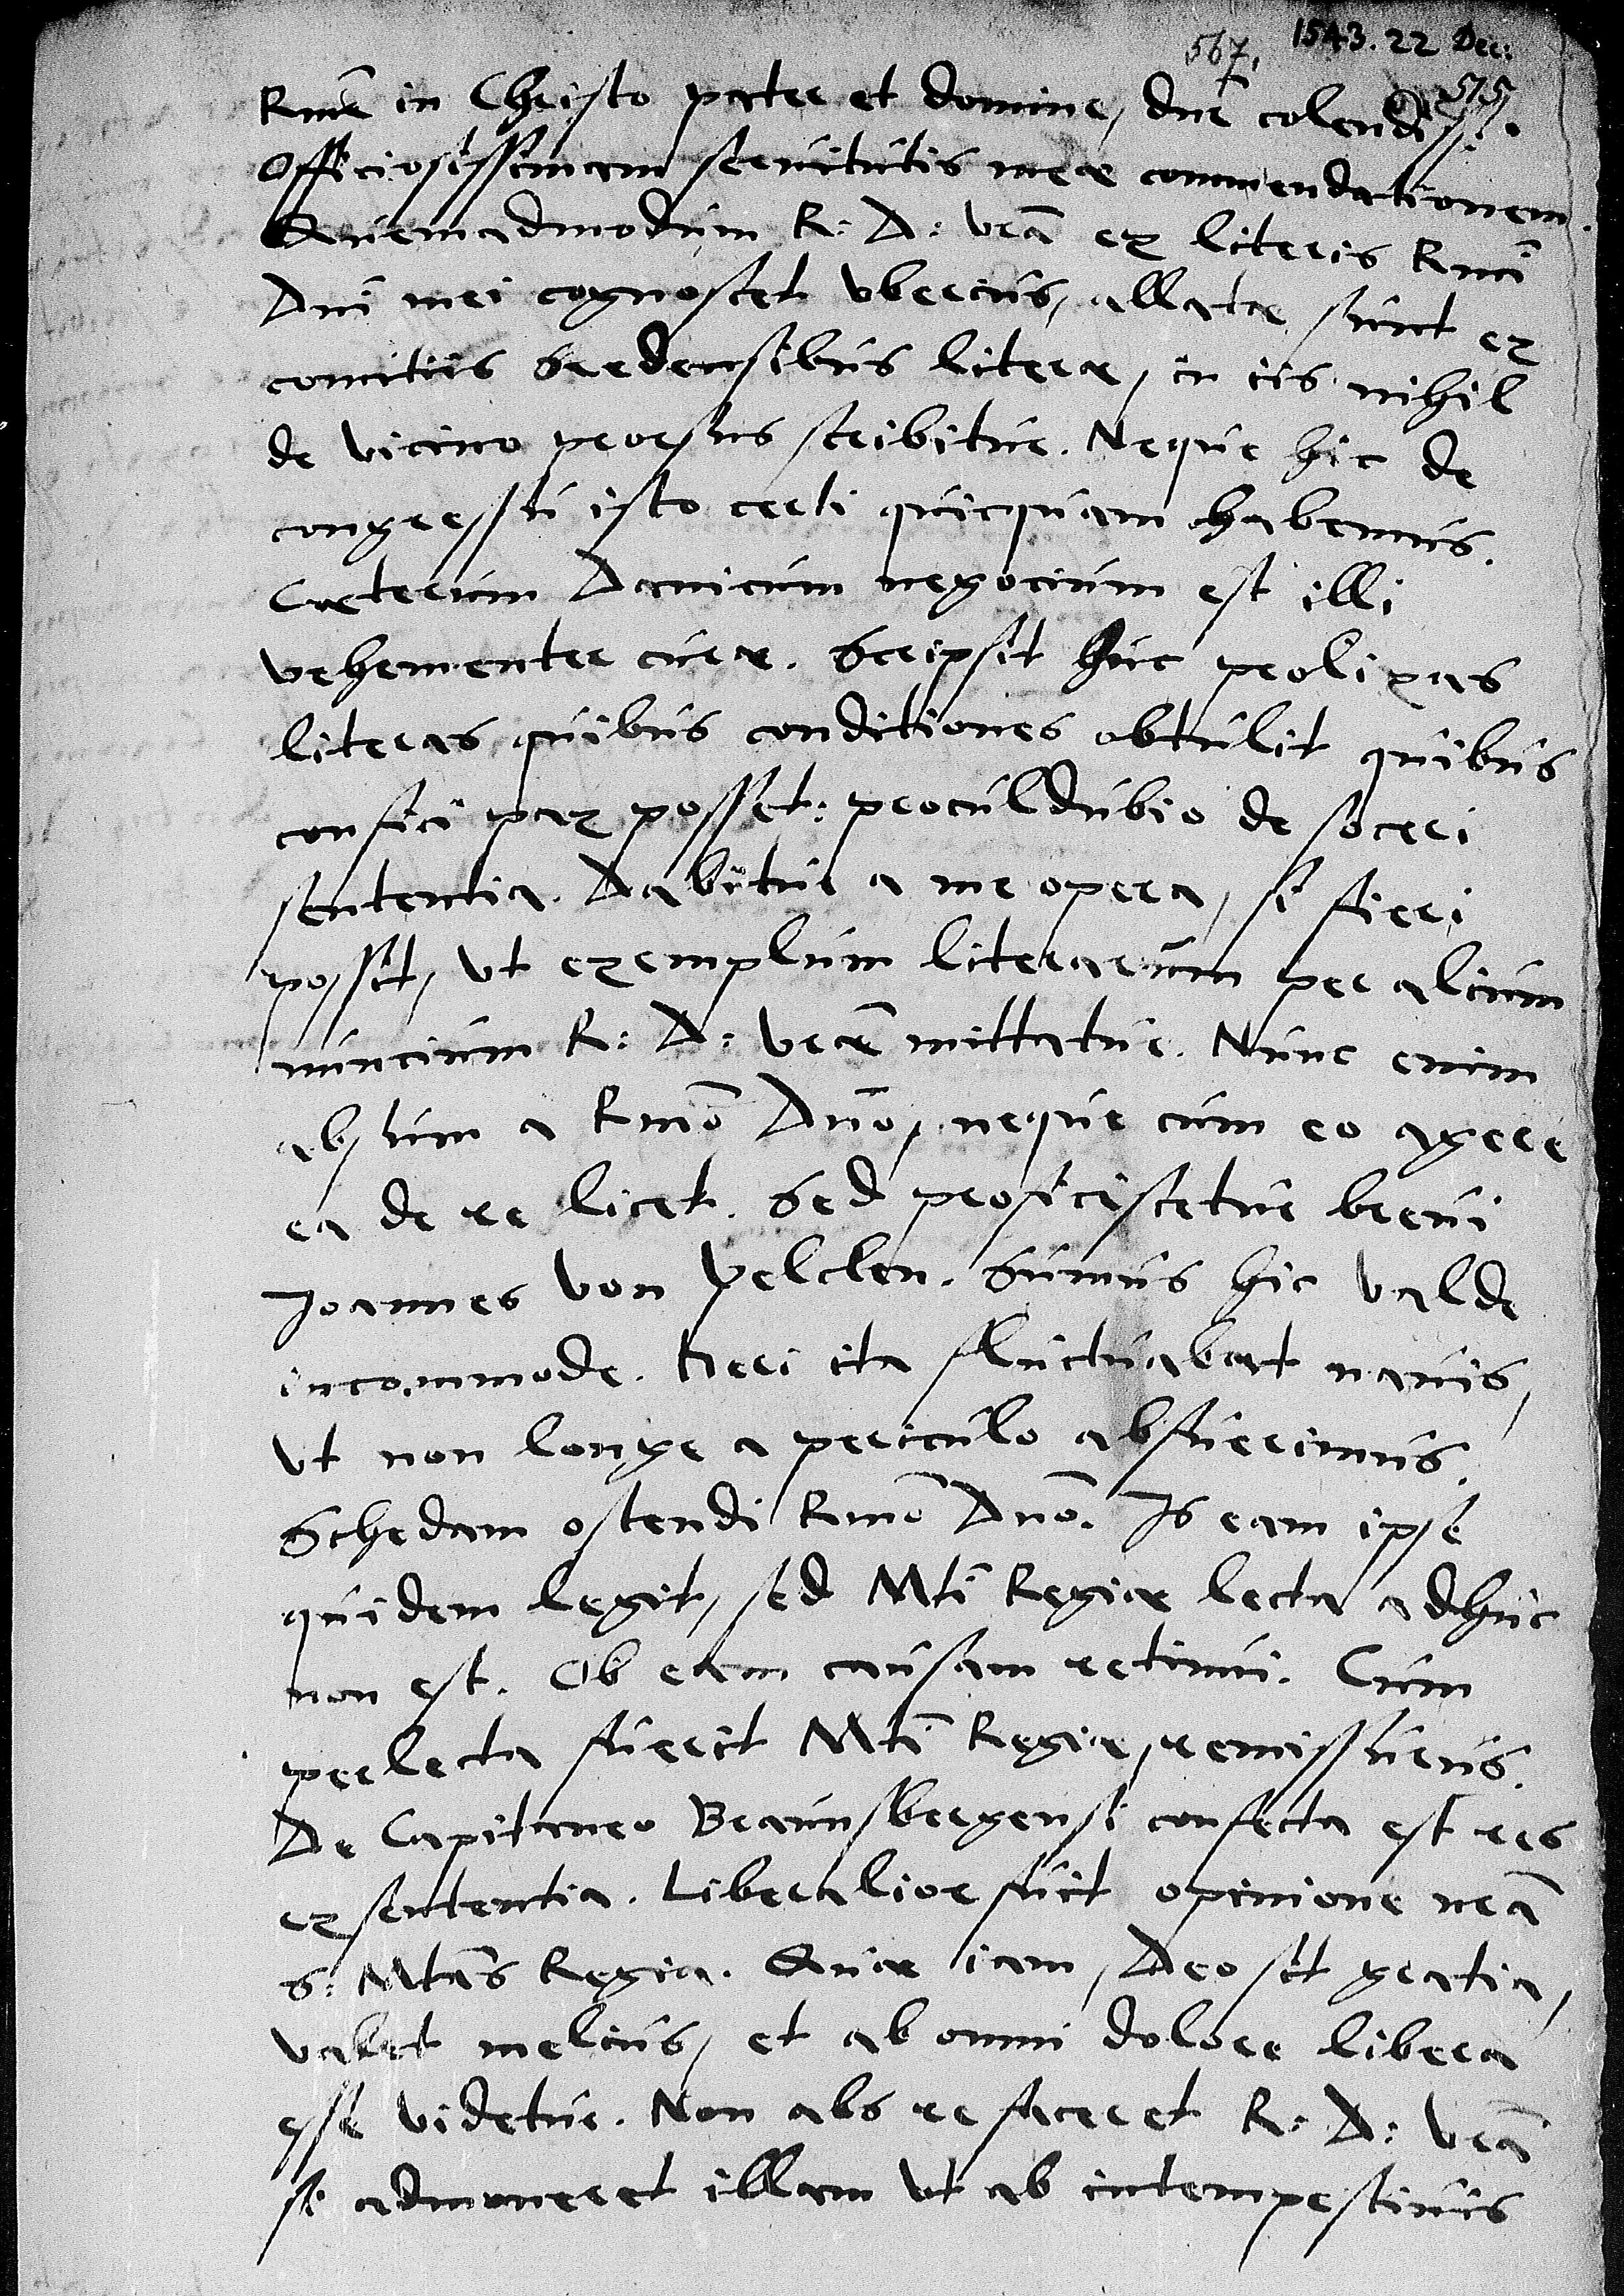 567. 1543. 22 Dec:
515
Rme in Christo pater et domine, dne colendissi.
Officiosissimam servitutis meae commendationem.
Quemadmodum R: D: vra ex literis Rmi
Dni mei cognoscet uberius, allatae sunt ex
comitiis Bredensibus literae, in iis nihil
de vicino prorsus scribitur. Neque hic de
congressu isto certi quicquam habemus.
Caeterum Danicum negocium est illi
vehementer curae. Scripsit huc prolixas
literas quibus conditiones obtulit quibus
confici pax posset: proculdubio de soceri
sententia. Dabitur a me opera, si fieri
possit, ut exemplum literarum per alium
nuncium R: D: vrae mittatur. Nunc enim
absum a Rmo Dno, neque cum eo agere
ea de re licet. Sed proficiscetur brevi
Joannes von Velclen. Sumus hic valde
incommode. Heri ita fluctuabat navis,
ut non longe a periculo abfuerimus.
Schedam ostendi Rmo Dno. Is eam ipse
quidem legit, sed Mti Regiae lecta adhuc
non est. Ob eam causam retinui. Cum
perlecta fuerit Mti Regiae, remissurus.
De Capitaneo Braunsbergensi confecta est res
ex sententia. Liberalior fuit opinione mea
S: Mtas Regia. Quae iam, Deo sit gratia,
valet melius, et ab omni dolore libera
esse videtur. Non abs re faceret R: D: vra
si admoneret illam ut ab intempestivis